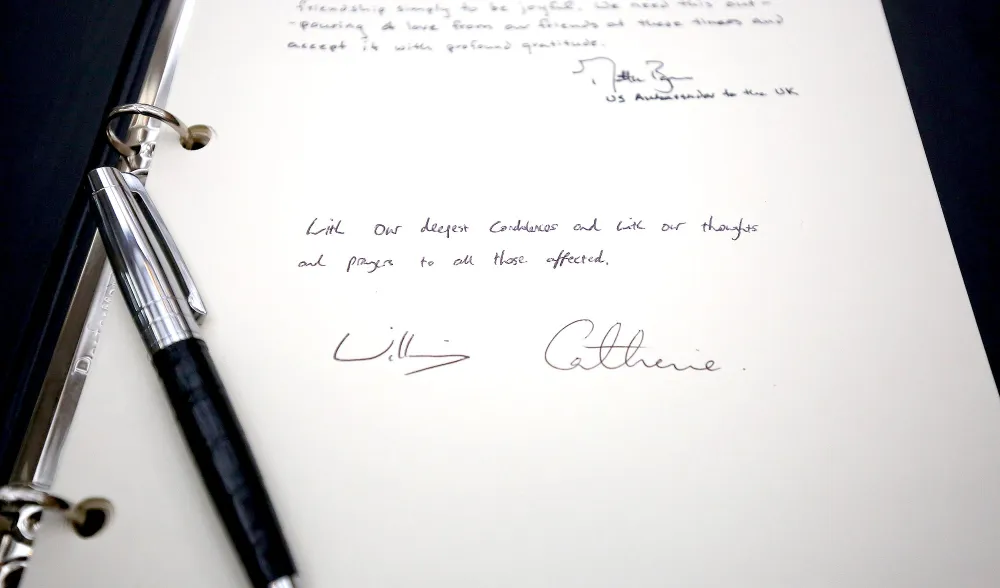 friendship simply to be joyful. We need this out-
-pouring of love from our friends at these times and
accept it with profound gratitude.
US Ambassador to the UK
With our deepest condolences and with our thoughts
and prayers to all those affected.
William
Catherine.